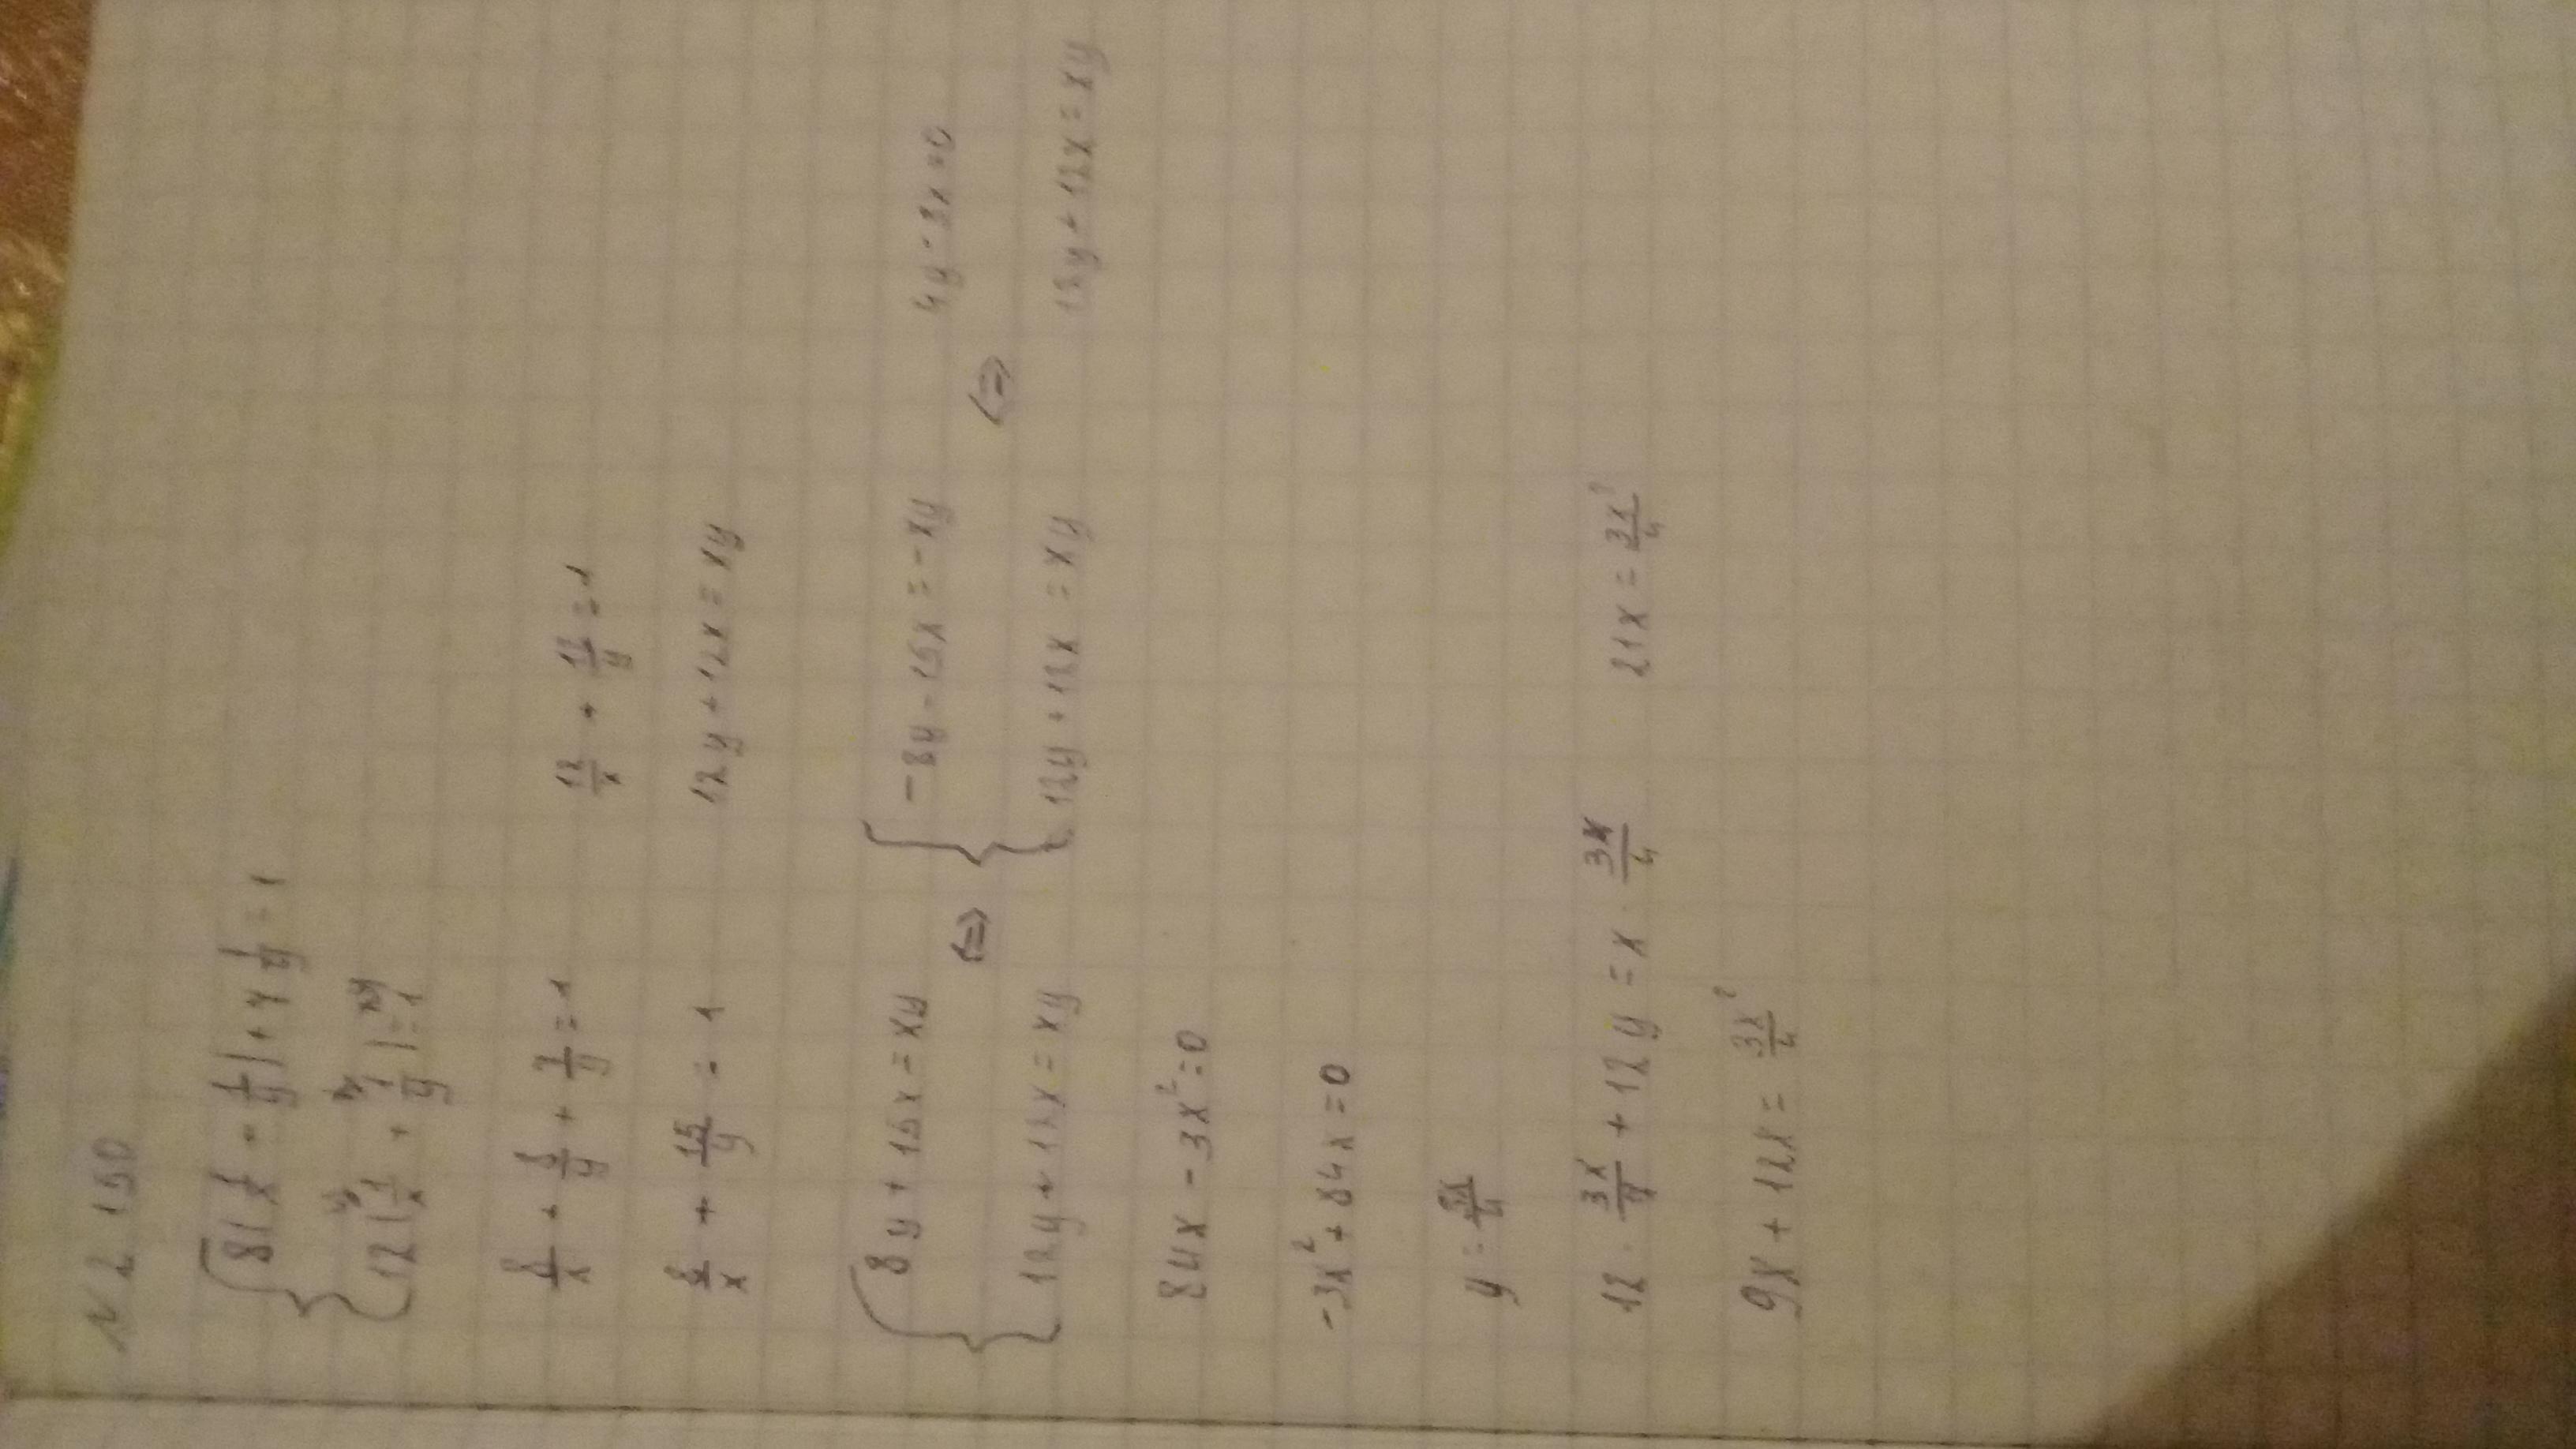 N 2 150
8(1/x - 1/y) + 7 1/y = 1
12(1/x + 1/y) = 1
8/x + 8/y + 7/y = 1    12/x + 12/y = 1
8/x + 15/y = 1    12y + 12x = xy
{ 8y + 15x = xy (=) { -8y - 15x = -xy (=) 4y - 3x = 0
12y + 12x = xy    12y + 12x = xy    12y + 12x = xy
84x - 3x² = 0
-3x² + 84x = 0
y = 3x/4
12 · 3x/4 + 12y = x · 3x/4    21x = 3x²/4
9x + 12x = 3x²/4